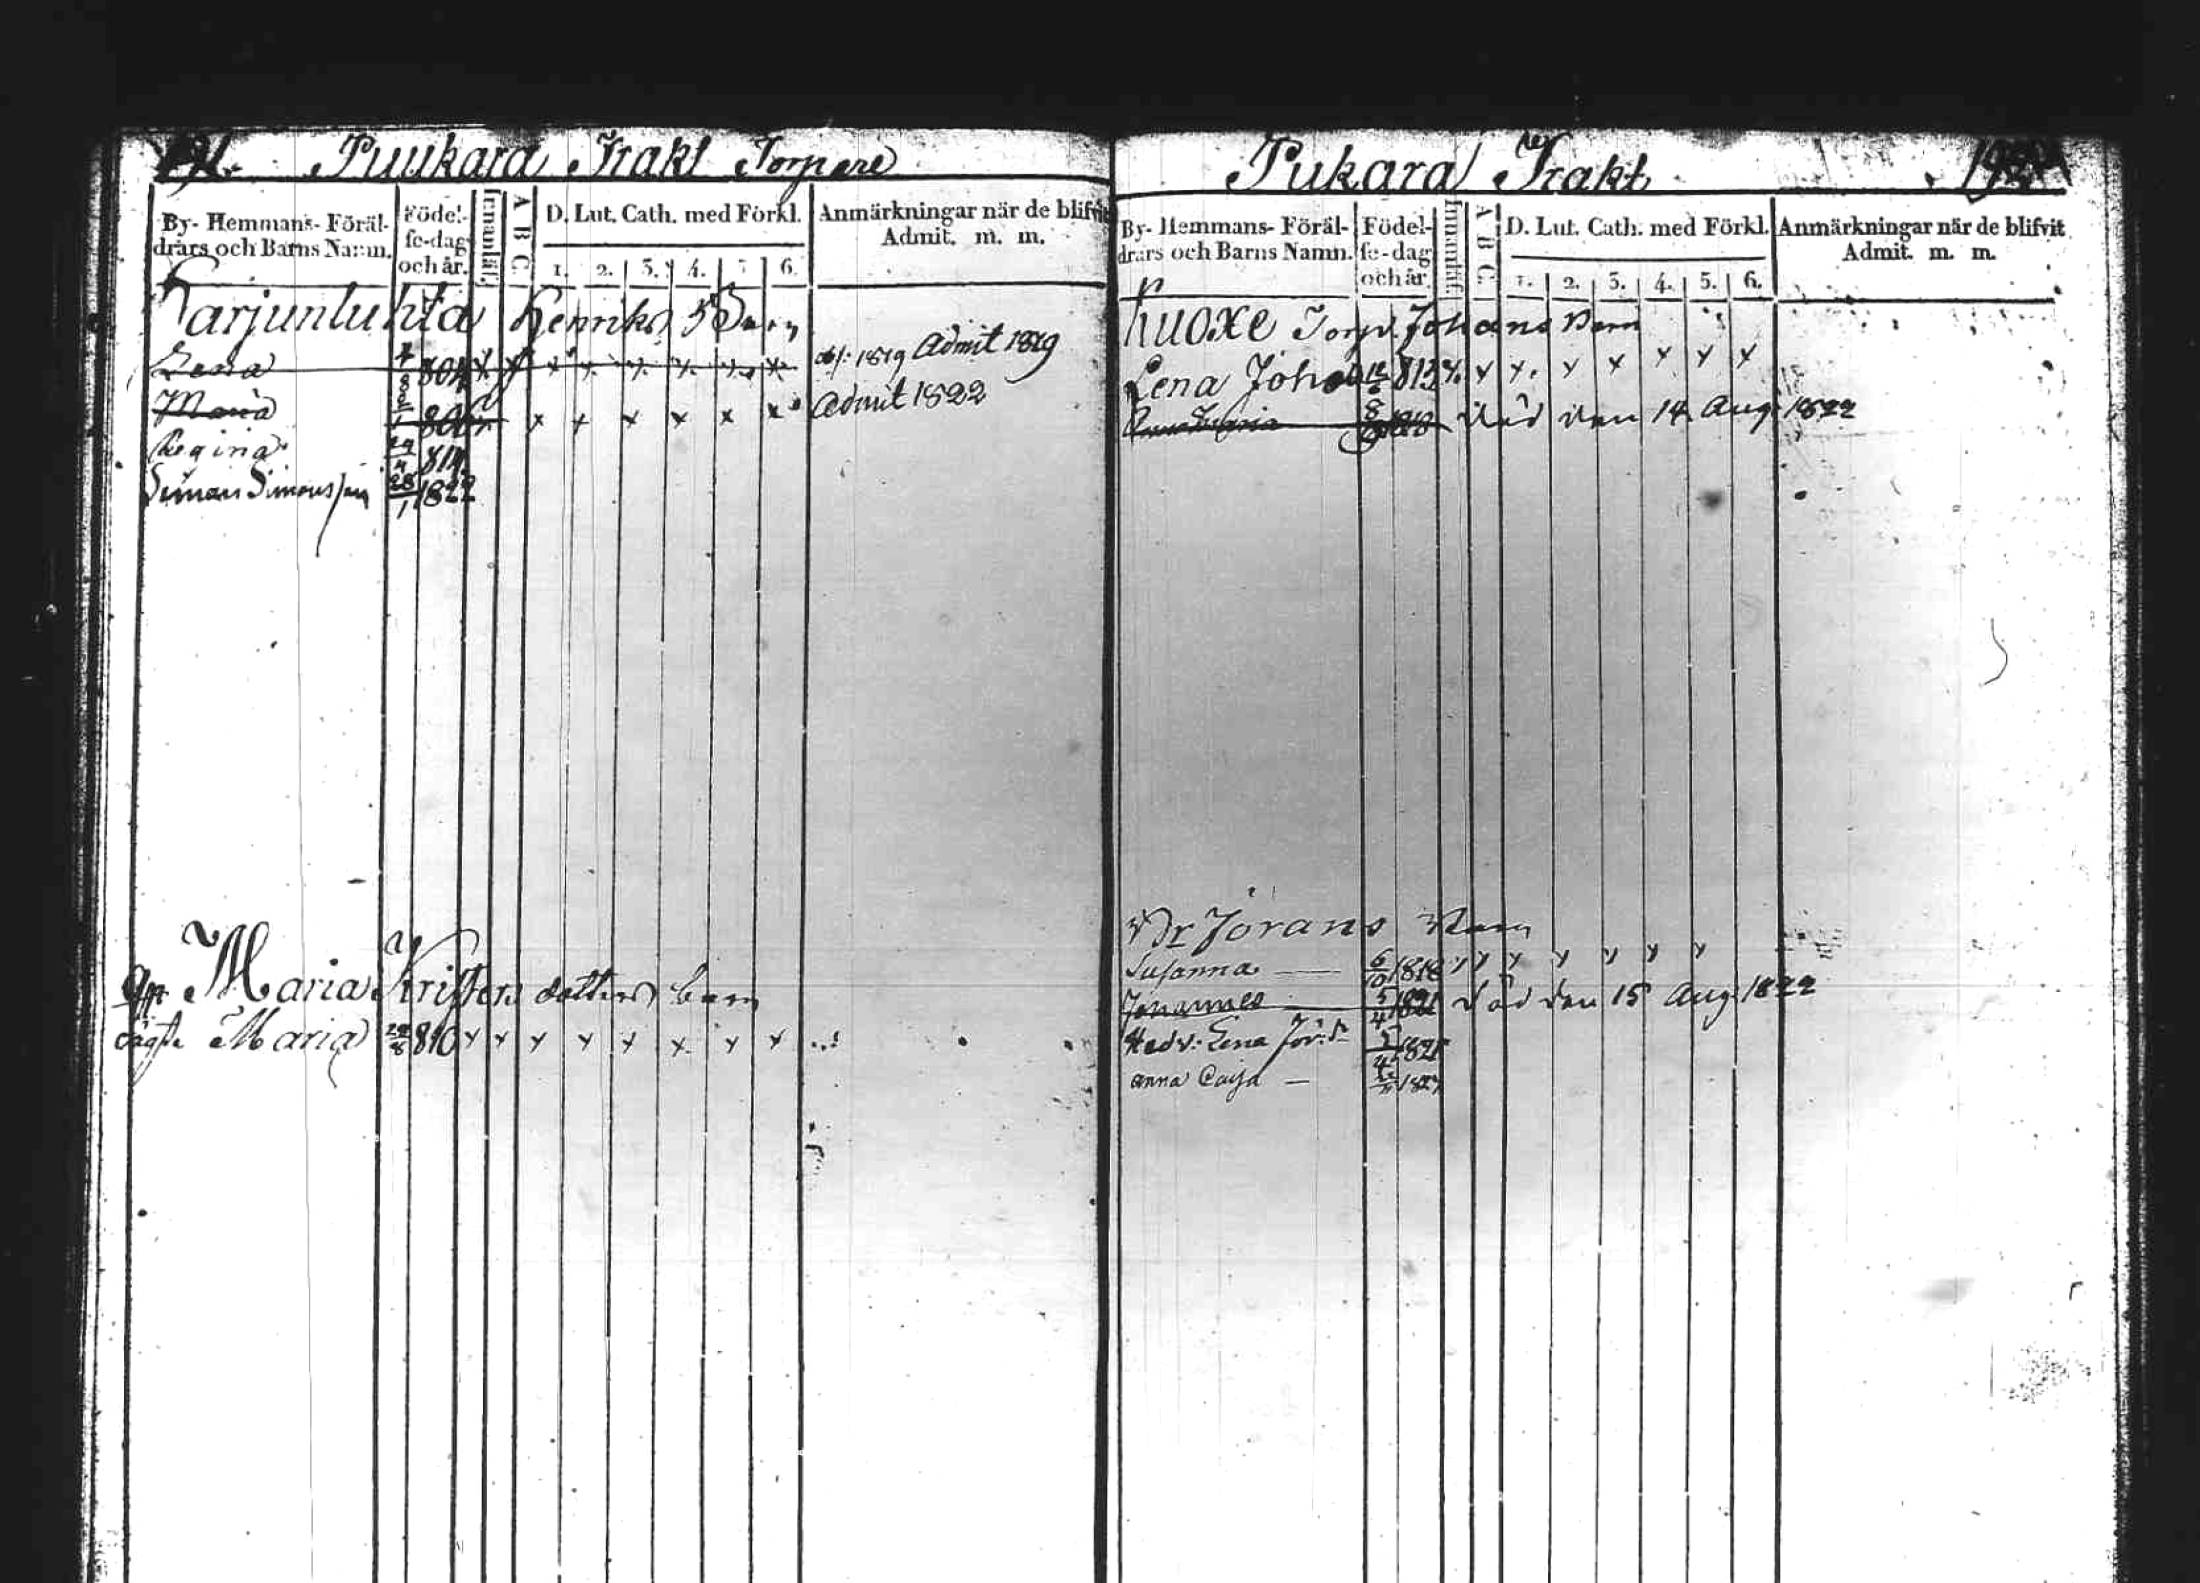 191. Puukara Trakt Torpare
By- Hemmans- Föräl-
drars och Barns Namn.
Födel-
se-dag
och år.
Innanläs.
A B C
D. Lut. Cath. med Förkl.
1. 2. 3. 4. 5. 6.
Anmärkningar när de blifvit
Admit. m. m.
Karjunluhta Henriks Barn
Lena 4/8 804 x x x x x x x x 1819 Admit 1819
Maria 2/1 806 x x x x x x Admit 1822
Regina 29/4 814
Simon Simonsson 28/1 1822
Maria Kristers dotters barn
Maria 810 x x x x x x x x
Pukara Trakt
By- Hemmans- Föräl-
drars och Barns Namn.
Födel-
se-dag
och år.
Innanläs.
A B C
D. Lut. Cath. med Förkl.
1. 2. 3. 4. 5. 6.
Anmärkningar när de blifvit
Admit. m. m.
Torp. Johans Barn
Lena Joh 12/6 813 x x x x x x x x
Maria 8/ 1818 död den 14 Aug 1822
Jörans Barn
Susanna — 6/10 1818 x x x x x x x
Johannes 5/4 1821 död den 15 Aug 1822
Hedv: Lena Jör: D. 5/4 1825
Anna Cajsa — 1827